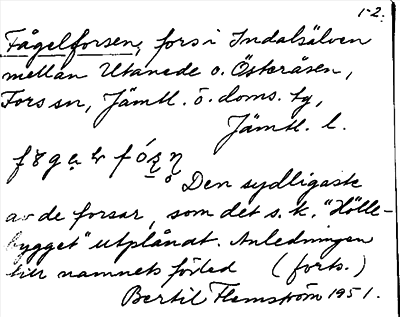 1-2.
Fågelforsen, fors i Indalsälven
mellan Utanede o. Österåsen,
Fors sn, Jämtl. ö. doms. tg,
Jämtl. l.
Den sydligaste
av de forsar, som det s.k. "Hölle-
bygget" utplånat. Anledningen
till namnets förled (forts.)
Bertil Flemström 1951.